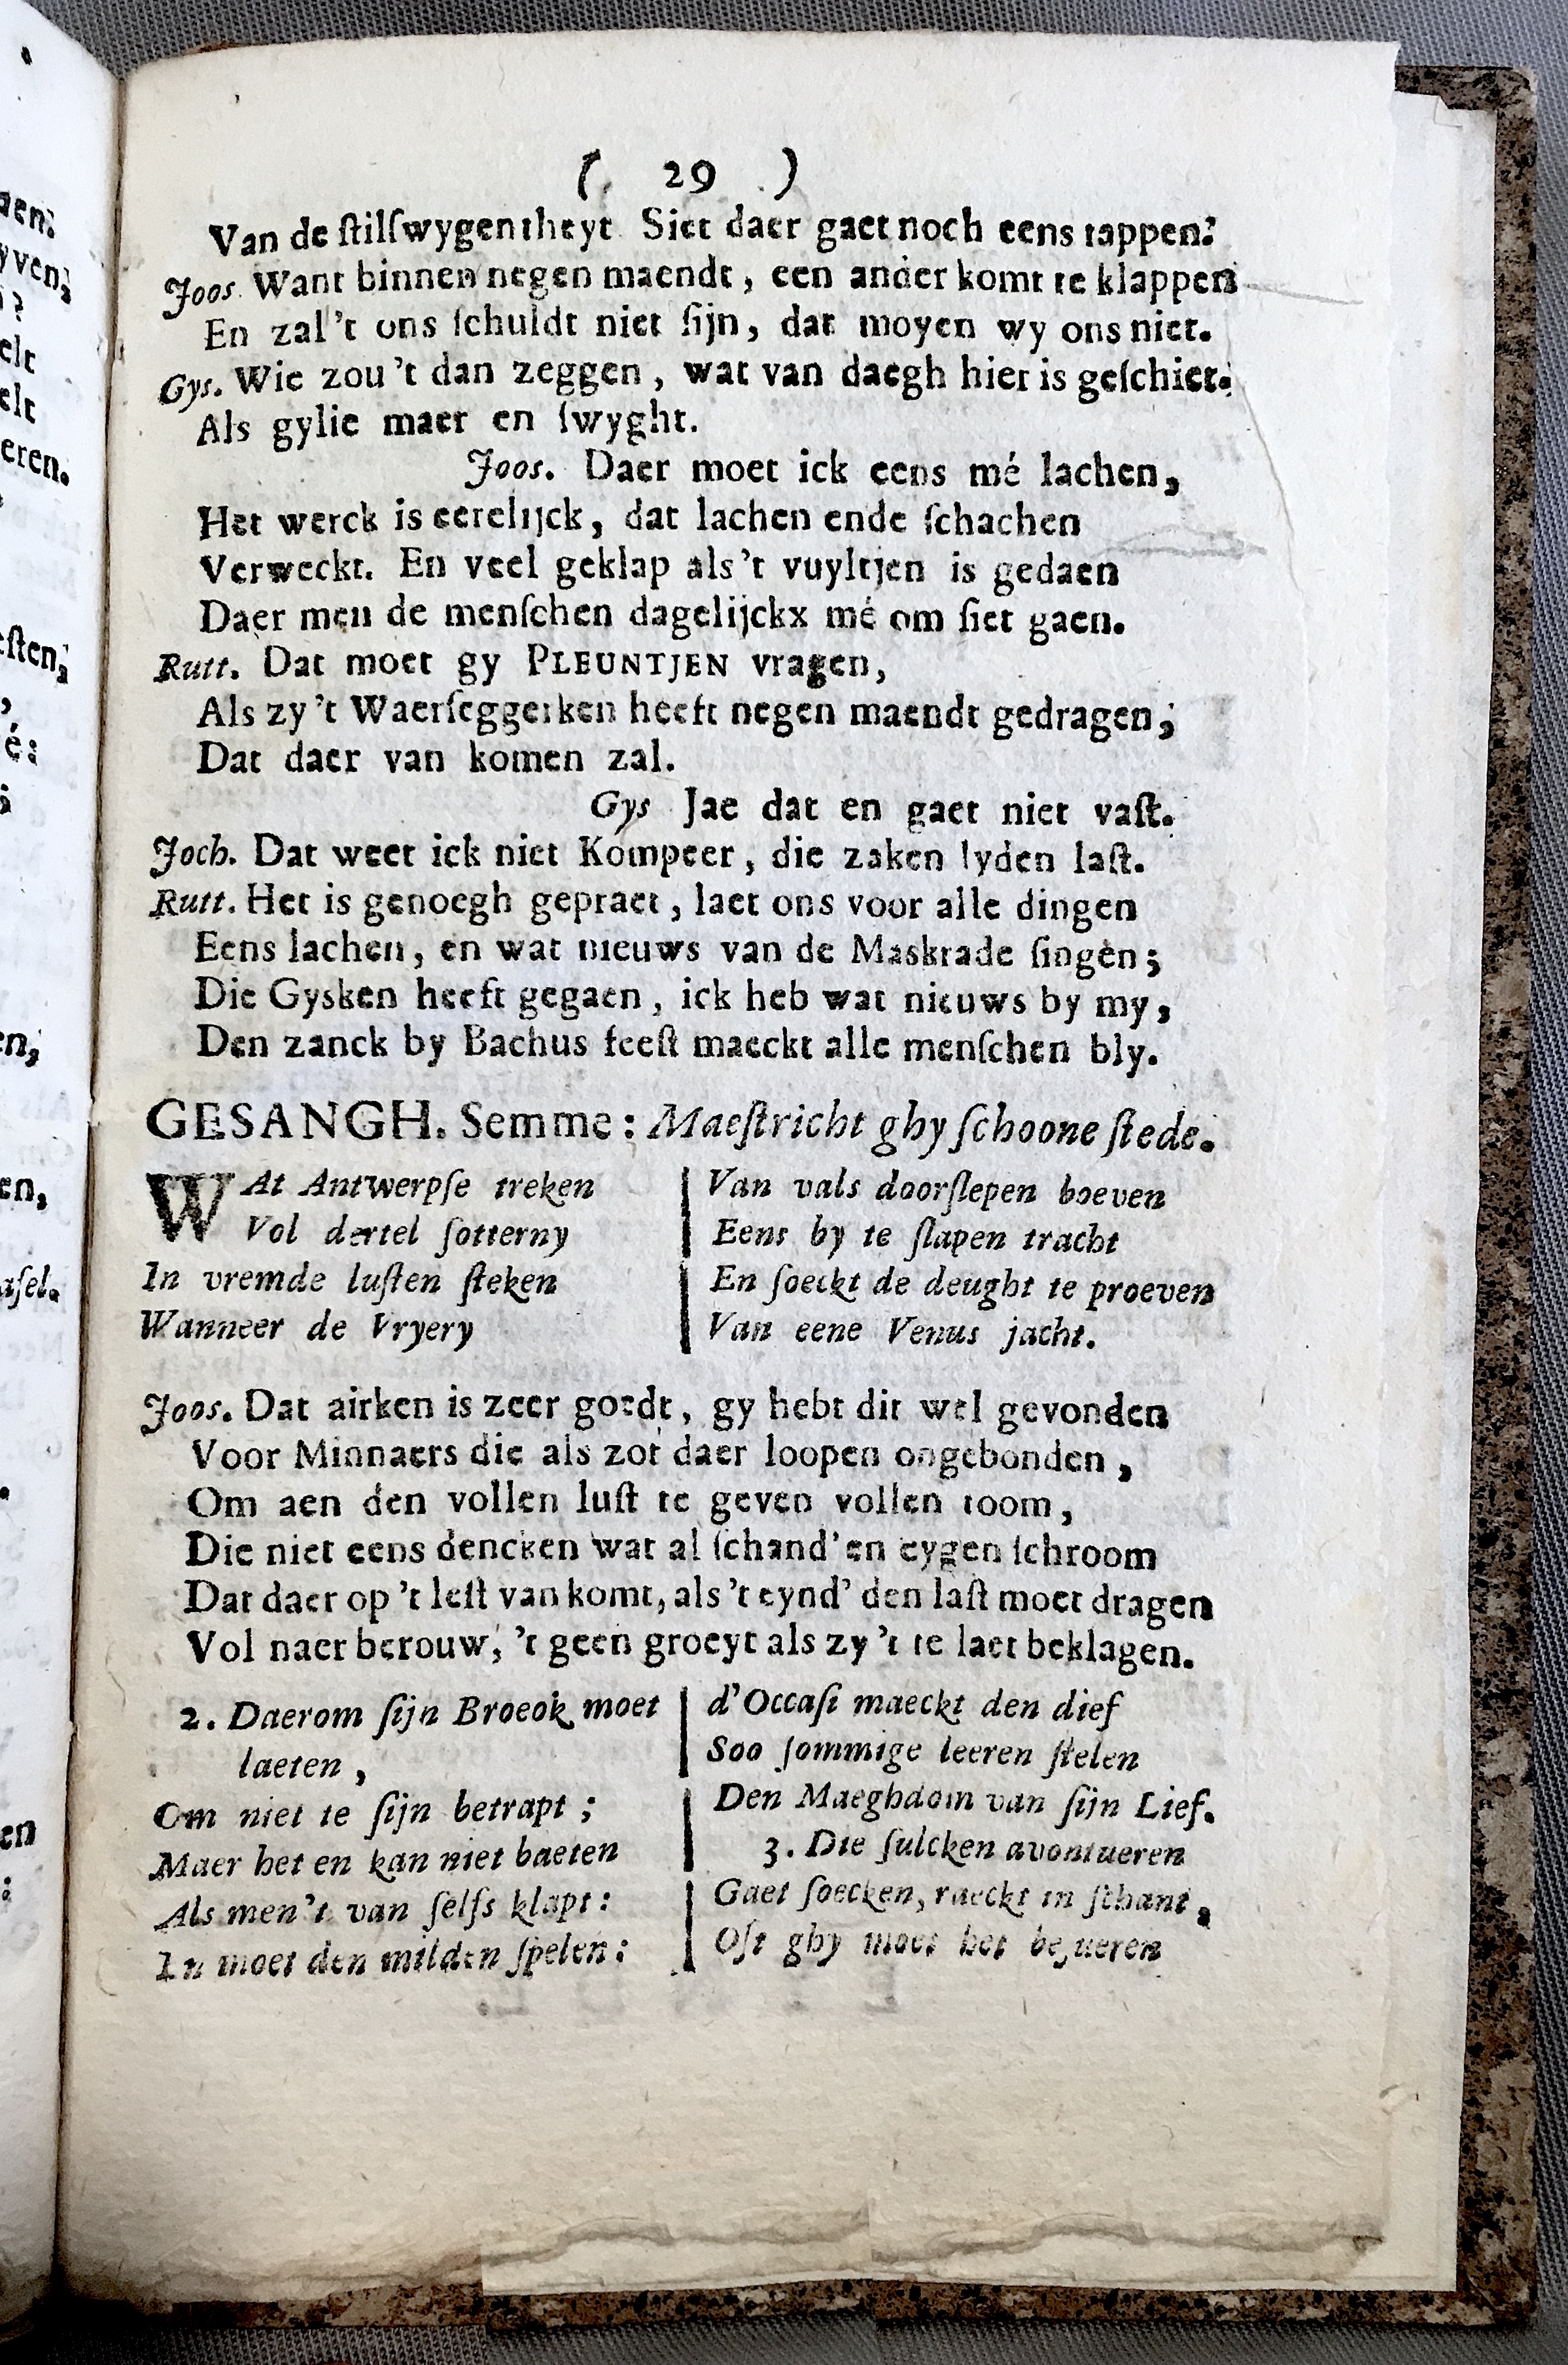 ( 29 )
Van de ſtilſwygentheyt Siet daer gaet noch eens tappen:
Joos. Want binnen negen maendt, een ander komt te klappen
En zal 't ons ſchuldt niet ſijn, dat moyen wy ons niet.
Gys. Wie zou 't dan zeggen, wat van daegh hier is geſchiet.
Als gylie maer en ſwyght.
Joos. Daer moet ick eens mé lachen,
Het werck is eerelijck, dat lachen ende ſchachen
Verweckt. En veel geklap als 't vuyltjen is gedaen
Daer men de menſchen dagelijckx mé om ſiet gaen.
Rutt. Dat moet gy PLEUNTJEN vragen,
Als zy 't Waerſeggerken heeft negen maendt gedragen,
Dat daer van komen zal.
Gys Jae dat en gaet niet vaſt.
Joch. Dat weet ick niet Kompeer, die zaken lyden laſt.
Rutt. Het is genoegh gepraet, laet ons voor alle dingen
Eens lachen, en wat nieuws van de Maskrade ſingen;
Die Gysken heeft gegaen, ick heb wat nieuws by my,
Den zanck by Bachus feeſt maeckt alle menſchen bly.
GESANGH. Semme: Maeſtricht ghy ſchoone ſtede.
WAt Antwerpſe treken
Vol dertel ſotterny
In vremde luſten ſteken
Wanneer de Vryery
Van vals doorſlepen boeven
Eens by te ſlapen tracht
En ſoeckt de deught te proeven
Van eene Venus jacht.
Joos. Dat airken is zeer goedt, gy hebt dit wel gevonden
Voor Minnaers die als zot daer loopen ongebonden,
Om aen den vollen luſt te geven vollen toom,
Die niet eens dencken wat al ſchand' en eygen ſchroom
Dat daer op 't leſt van komt, als 't eynd' den laſt moet dragen
Vol naer berouw, 't geen groeyt als zy 't te laet beklagen.
2. Daerom ſijn Broeok moet
laeten,
Om niet te ſijn betrapt;
Maer het en kan niet baeten
Als men 't van ſelfs klapt:
In moet den milden ſpelen:
d'Occaſi maeckt den dief
Soo ſommige leeren ſtelen
Den Maeghdom van ſijn Lief.
3. Die ſulcken avontueren
Gaet ſoecken, raeckt in ſchant,
Oft ghy moet het bezueren